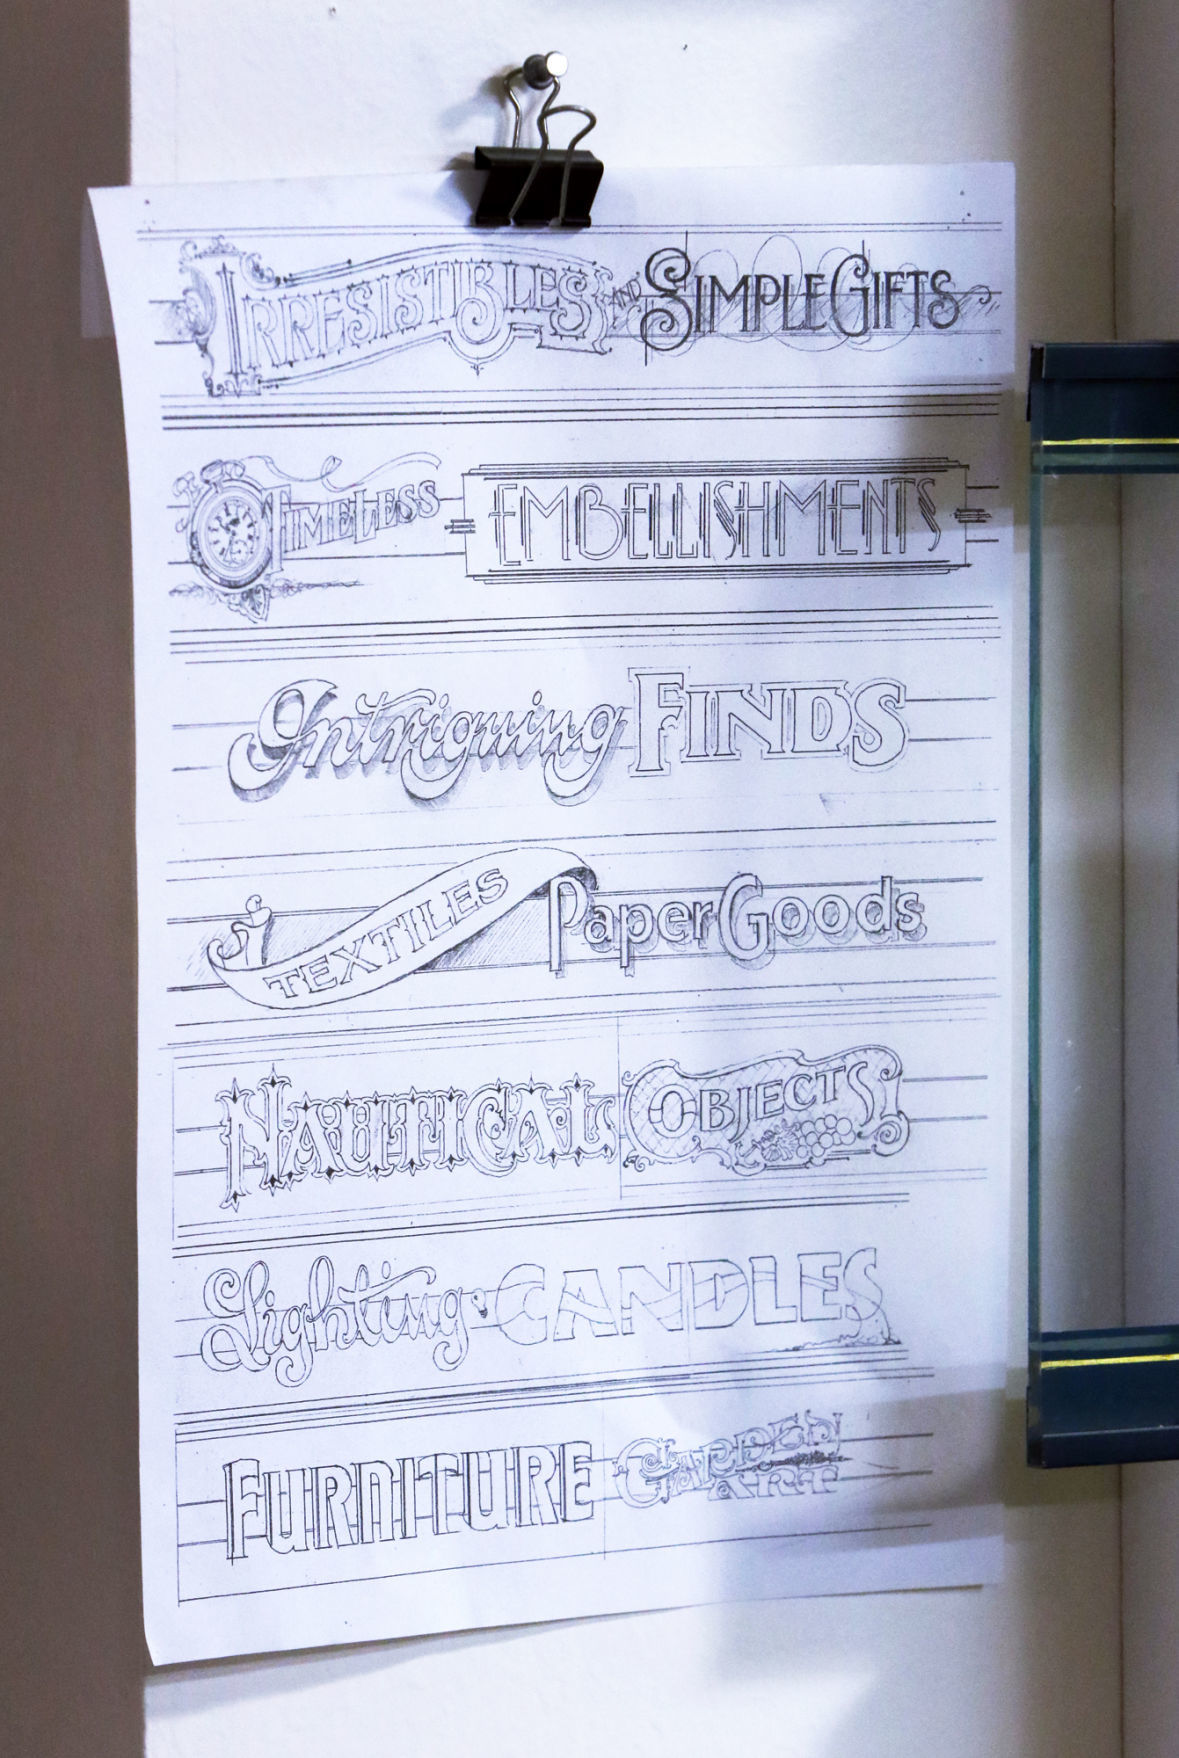 IRRESISTIBLES AND SIMPLE GIFTS
TIMELESS EMBELLISHMENTS
Intriguing FINDS
TEXTILES Paper Goods
NAUTICAL OBJECTS
Lighting CANDLES
FURNITURE GARDEN
ART